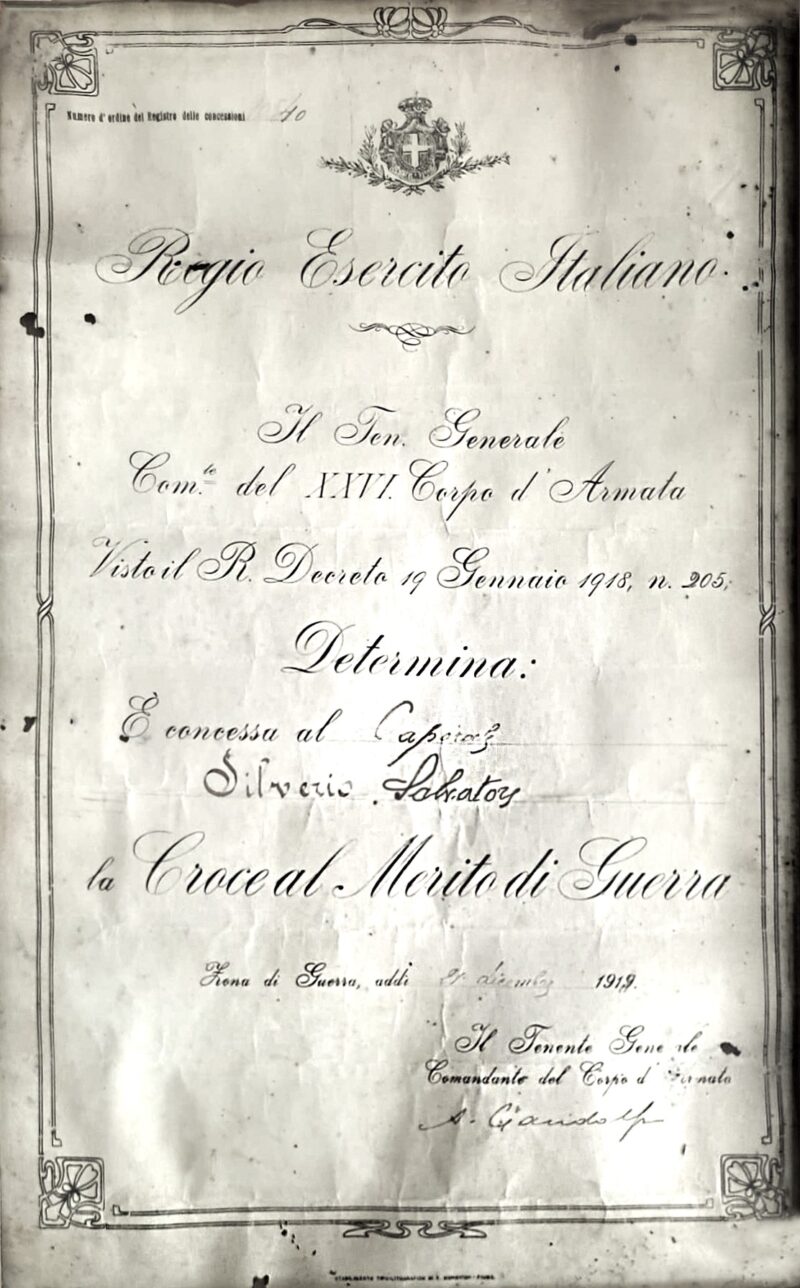 Numero d'ordine del Registro delle concessioni
Regio Esercito Italiano.
Il Ten. Generale
Com.te del XXVI. Corpo d'Armata
Visto il R. Decreto 19 Gennaio 1918, n. 205;
Determina:
È concessa al
Silverio Salvatore
la Croce al Merito di Guerra
Zona di Guerra, addì 1919.
Il Tenente Generale
Comandante del Corpo d'Armata